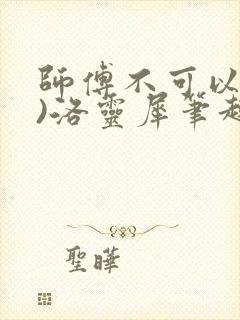 師傅不可以
)洛靈犀筆趣
聖曄